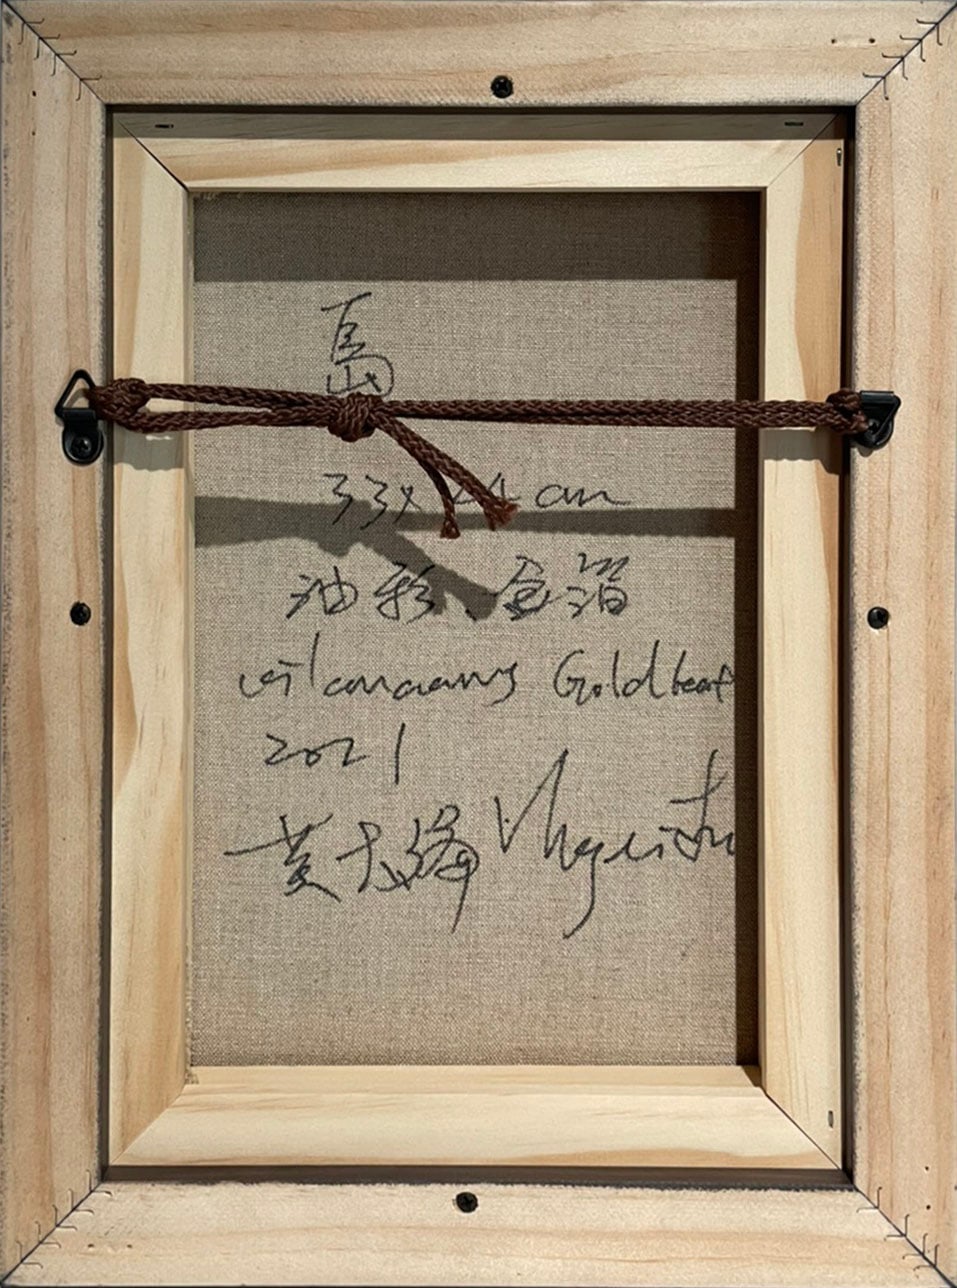 島
33x24 cm
油彩、金箔
oil on canvas Gold leaf
2021
黃